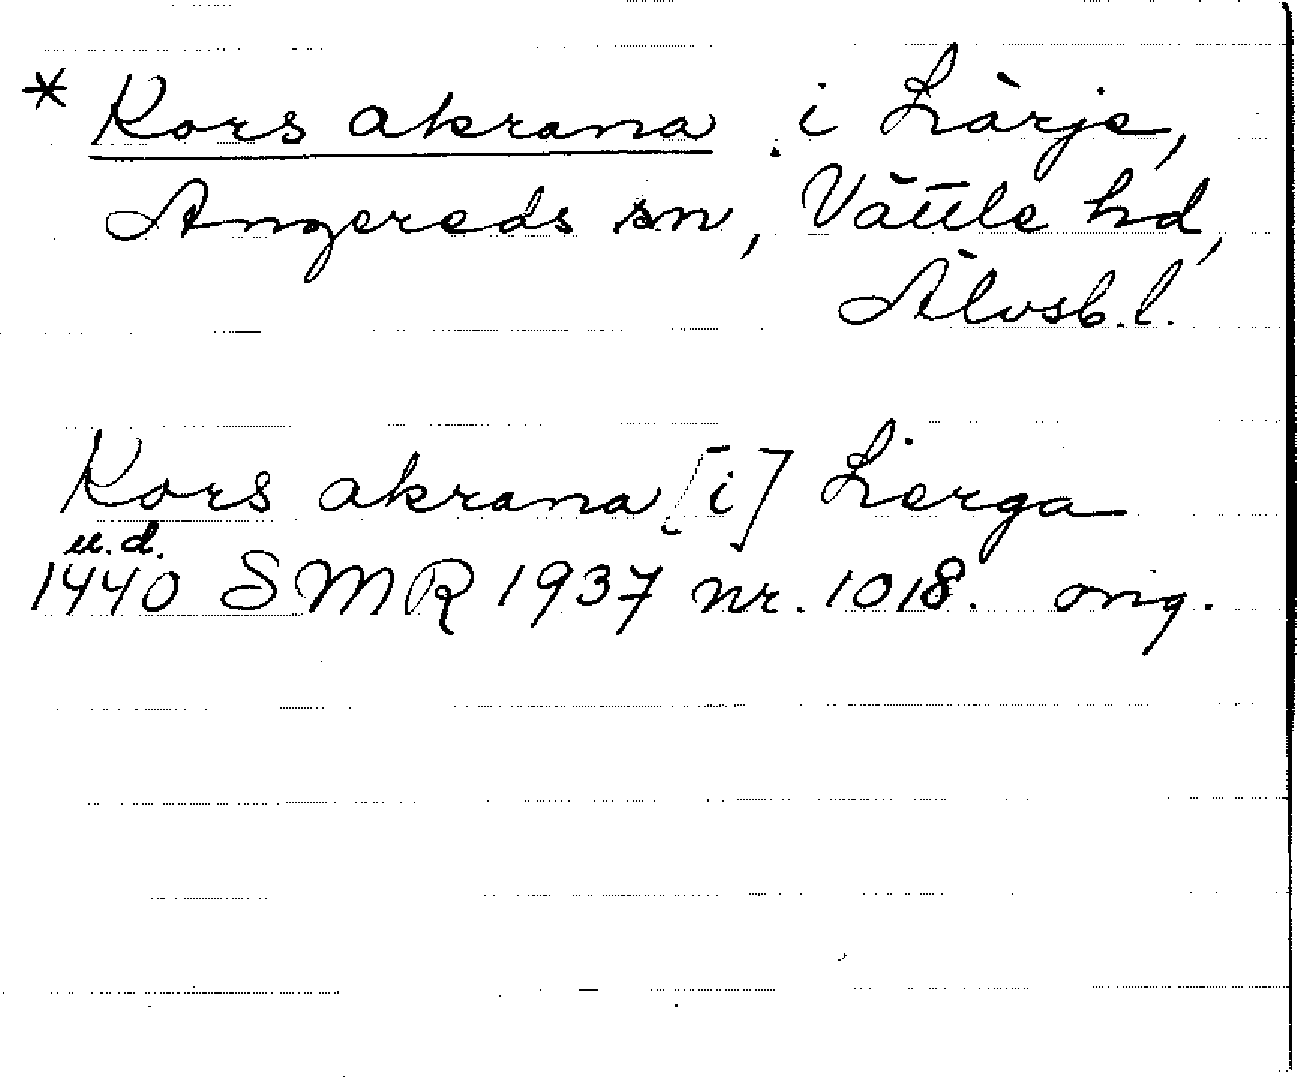 * Kors akrana i Lärje,
Angereds sn, Vättle hd,
Älvsb. l.
Kors akrana [i] Lerga
u.d.
1440 SMR 1937 nr. 1018. orig.